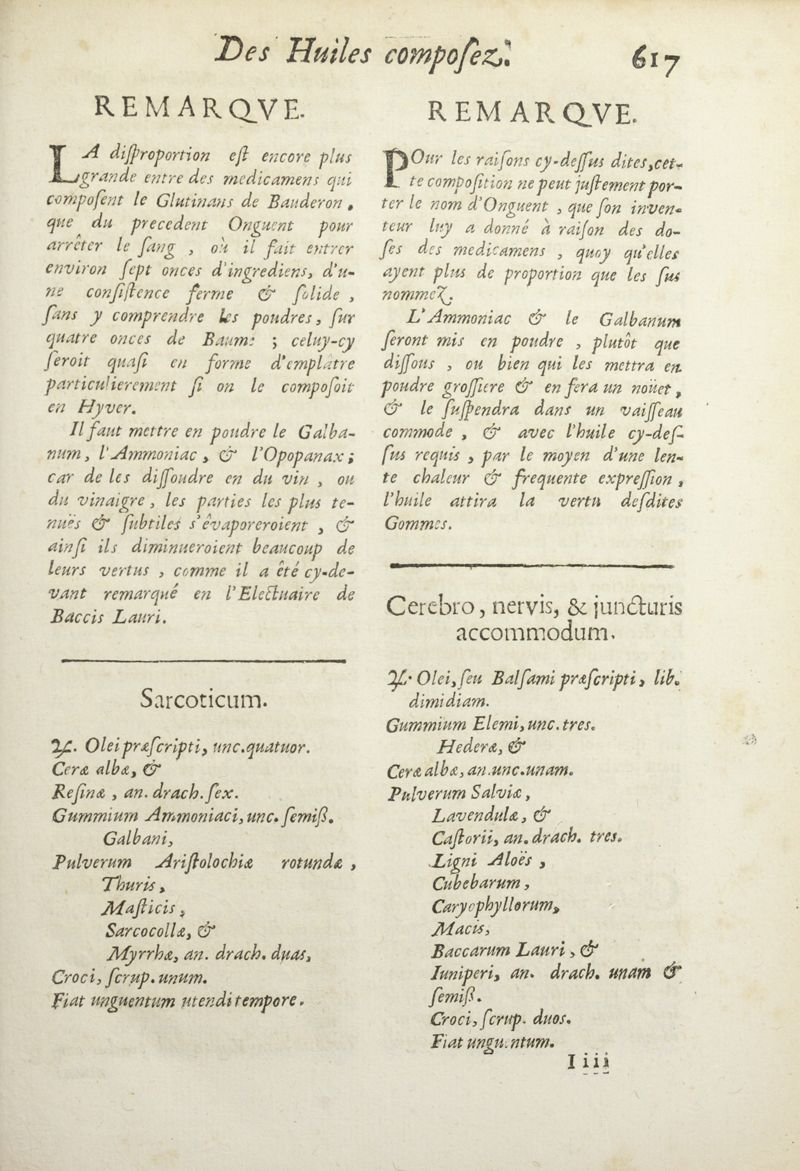 Des Huiles compoſez. 617
REMARQVE.
LA diſproportion eſt encore plus
grande entre des medicamens qui
compoſent le Glutinans de Bauderon,
que du precedent Onguent pour
arrêter le ſang , où il fait entrer
environ ſept onces d'ingrediens, d'u-
ne conſiſtence ferme & ſolide ,
ſans y comprendre les poudres, ſur
quatre onces de Baume ; celuy-cy
ſeroit quaſi en forme d'emplâtre
particulierement ſi on le compoſoit
en Hyver.
Il faut mettre en poudre le Galba-
num, l'Ammoniac, & l'Opopanax;
car de les diſſoudre en du vin , ou
du vinaigre, les parties les plus te-
nuës & ſubtiles s'évaporeroient , &
ainſi ils diminueroient beaucoup de
leurs vertus , comme il a été cy-de-
vant remarqué en l'Electuaire de
Baccis Lauri.
Sarcoticum.
♃. Olei præſcripti, unc.quatuor.
Ceræ albæ, &
Reſinæ , an. drach. ſex.
Gummium Ammoniaci, unc. ſemiß.
Galbani,
Pulverum Ariſtolochiæ rotundæ ,
Thuris,
Maſticis,
Sarcocollæ, &
Myrrhæ, an. drach. duas,
Croci, ſcrup. unum.
Fiat unguentum utendi tempore.
REMARQVE.
POur les raiſons cy-deſſus dites,cet-
te compoſition ne peut juſtement por-
ter le nom d'Onguent , que ſon inven-
teur luy a donné à raiſon des do-
ſes des medicamens , quoy qu'elles
ayent plus de proportion que les ſus
nommez.
L'Ammoniac & le Galbanum
ſeront mis en poudre , plutôt que
diſſous , ou bien qui les mettra en
poudre groſſiere & en fera un noüet,
& le ſuſpendra dans un vaiſſeau
commode , & avec l'huile cy-deſ-
ſus requis , par le moyen d'une len-
te chaleur & frequente expreſſion ,
l'huile attira la vertu deſdites
Gommes.
Cerebro, nervis, & juncturis
accommodum.
♃. Olei, ſeu Balſami præſcripti, lib.
dimidiam.
Gummium Elemi, unc. tres.
Hederæ, &
Ceræ albæ, an.unc.unam.
Pulverum Salviæ,
Lavendulæ, &
Caſtorii, an. drach. tres.
Ligni Aloës ,
Cubebarum,
Caryophyllorum,
Macis,
Baccarum Lauri, &
Iuniperi, an. drach. unam &
ſemiß.
Croci, ſcrup. duos.
Fiat unguentum.
I iii